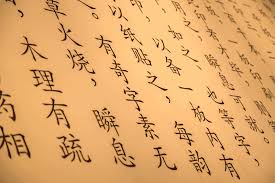 也等字，
以备一板内有
以纸贴之，每韵
有奇字素无
草火烧，瞬息
木理有疏
药相